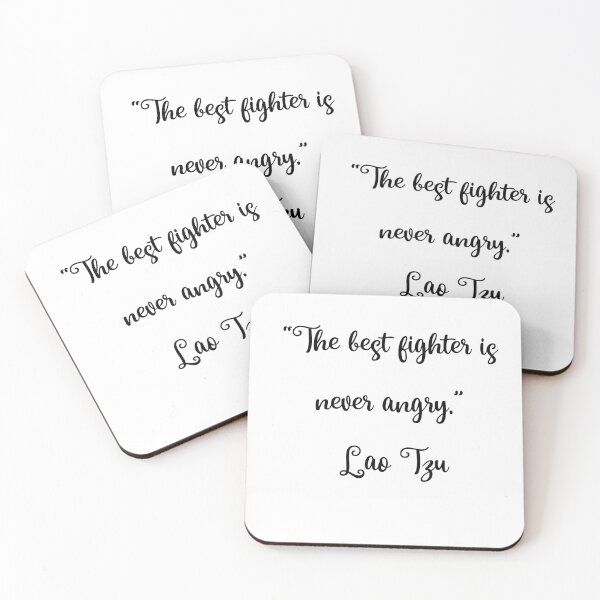 “The best fighter is
never angry.”
Tzu
“The best fighter is
never angry.”
Lao Tzu
“The best fighter is
never angry.”
Lao
“The best fighter is
never angry.”
Lao Tzu